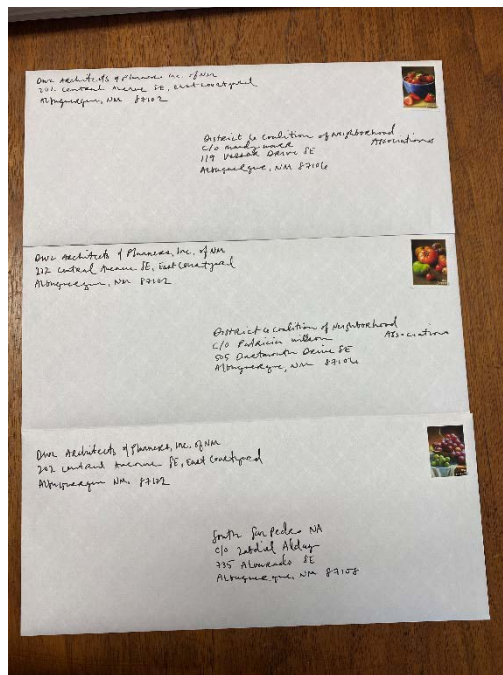 DWL Architects & Planners Inc. of NM
202 Central Avenue SE, East Courtyard
Albuquerque, NM 87102
District 6 Coalition of Neighborhood
Associations
C/O Mandy
119 Vassar Drive SE
Albuquerque, NM 87106
DWL Architects & Planners, Inc. of NM
202 Central Avenue SE, East Courtyard
Albuquerque, NM 87102
District 6 Coalition of Neighborhood
Associations
C/O Patricia Willson
505 Dartmouth Drive SE
Albuquerque, NM 87106
DWL Architects & Planners, Inc. of NM
202 Central Avenue SE, East Courtyard
Albuquerque NM. 87102
South San Pedro NA
C/O Zabdiel Aldaz
735 Alvarado SE
Albuquerque, NM 87108